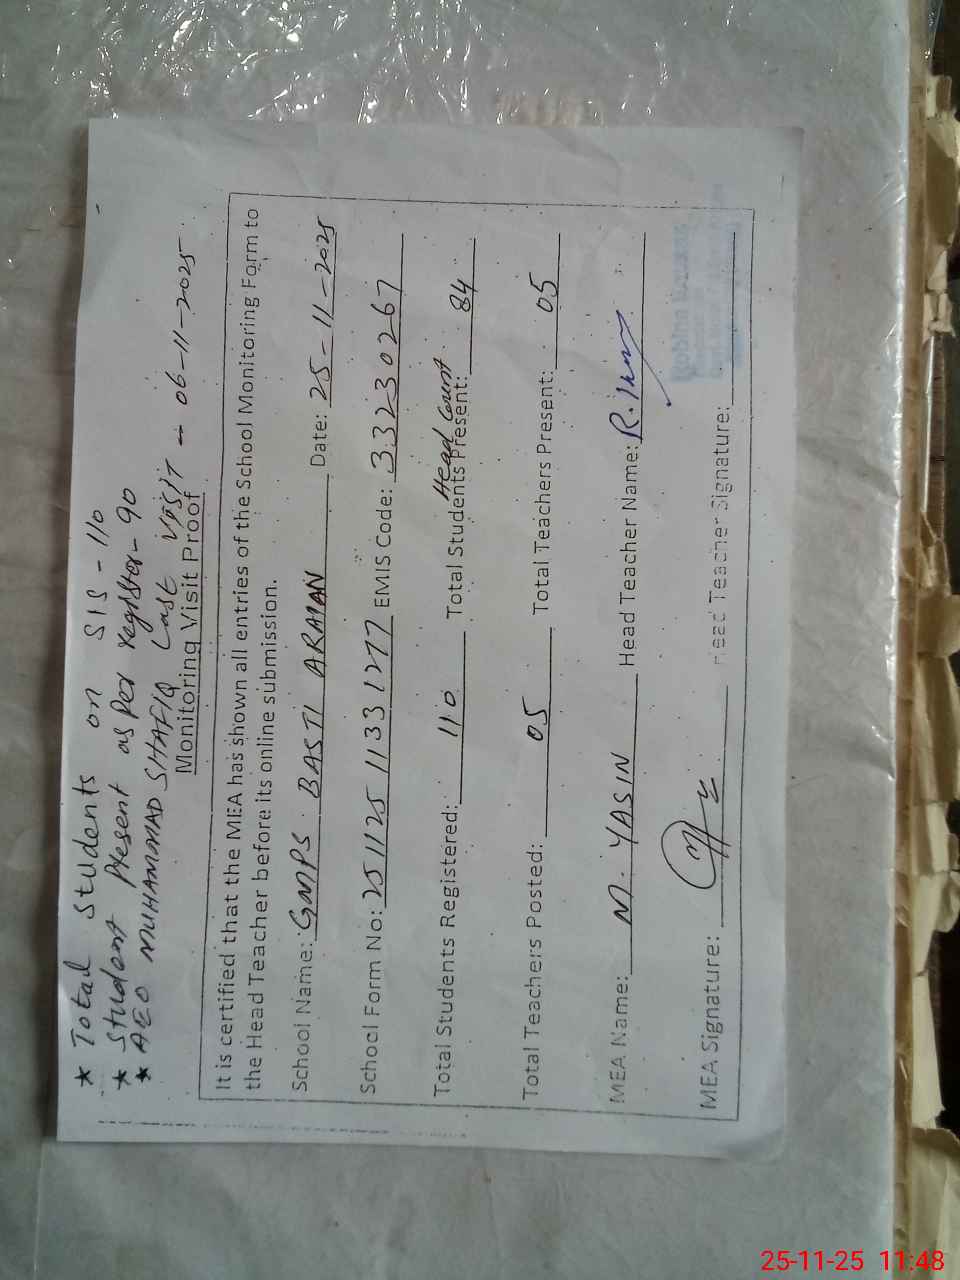 * Total Students on SIS - 110
* Student Present as per register - 90
* AEO MUHAMMAD SHAFIQ Last VISIT - 06-11-2025
Monitoring Visit Proof
It is certified that the MEA has shown all entries of the School Monitoring Form to
the Head Teacher before its online submission.
School Name: GMPS. BASTI ARAIAN Date: 25-11-2025
School Form No: 251125 1133 1277 EMIS Code: 32330267
Head Count
Total Students Registered: 110 Total Students Present: 84
Total Teachers Posted: 05 Total Teachers Present: 05
MEA Name: M. YASIN Head Teacher Name:
MEA Signature: Head Teacher Signature:
25-11-25 11:48